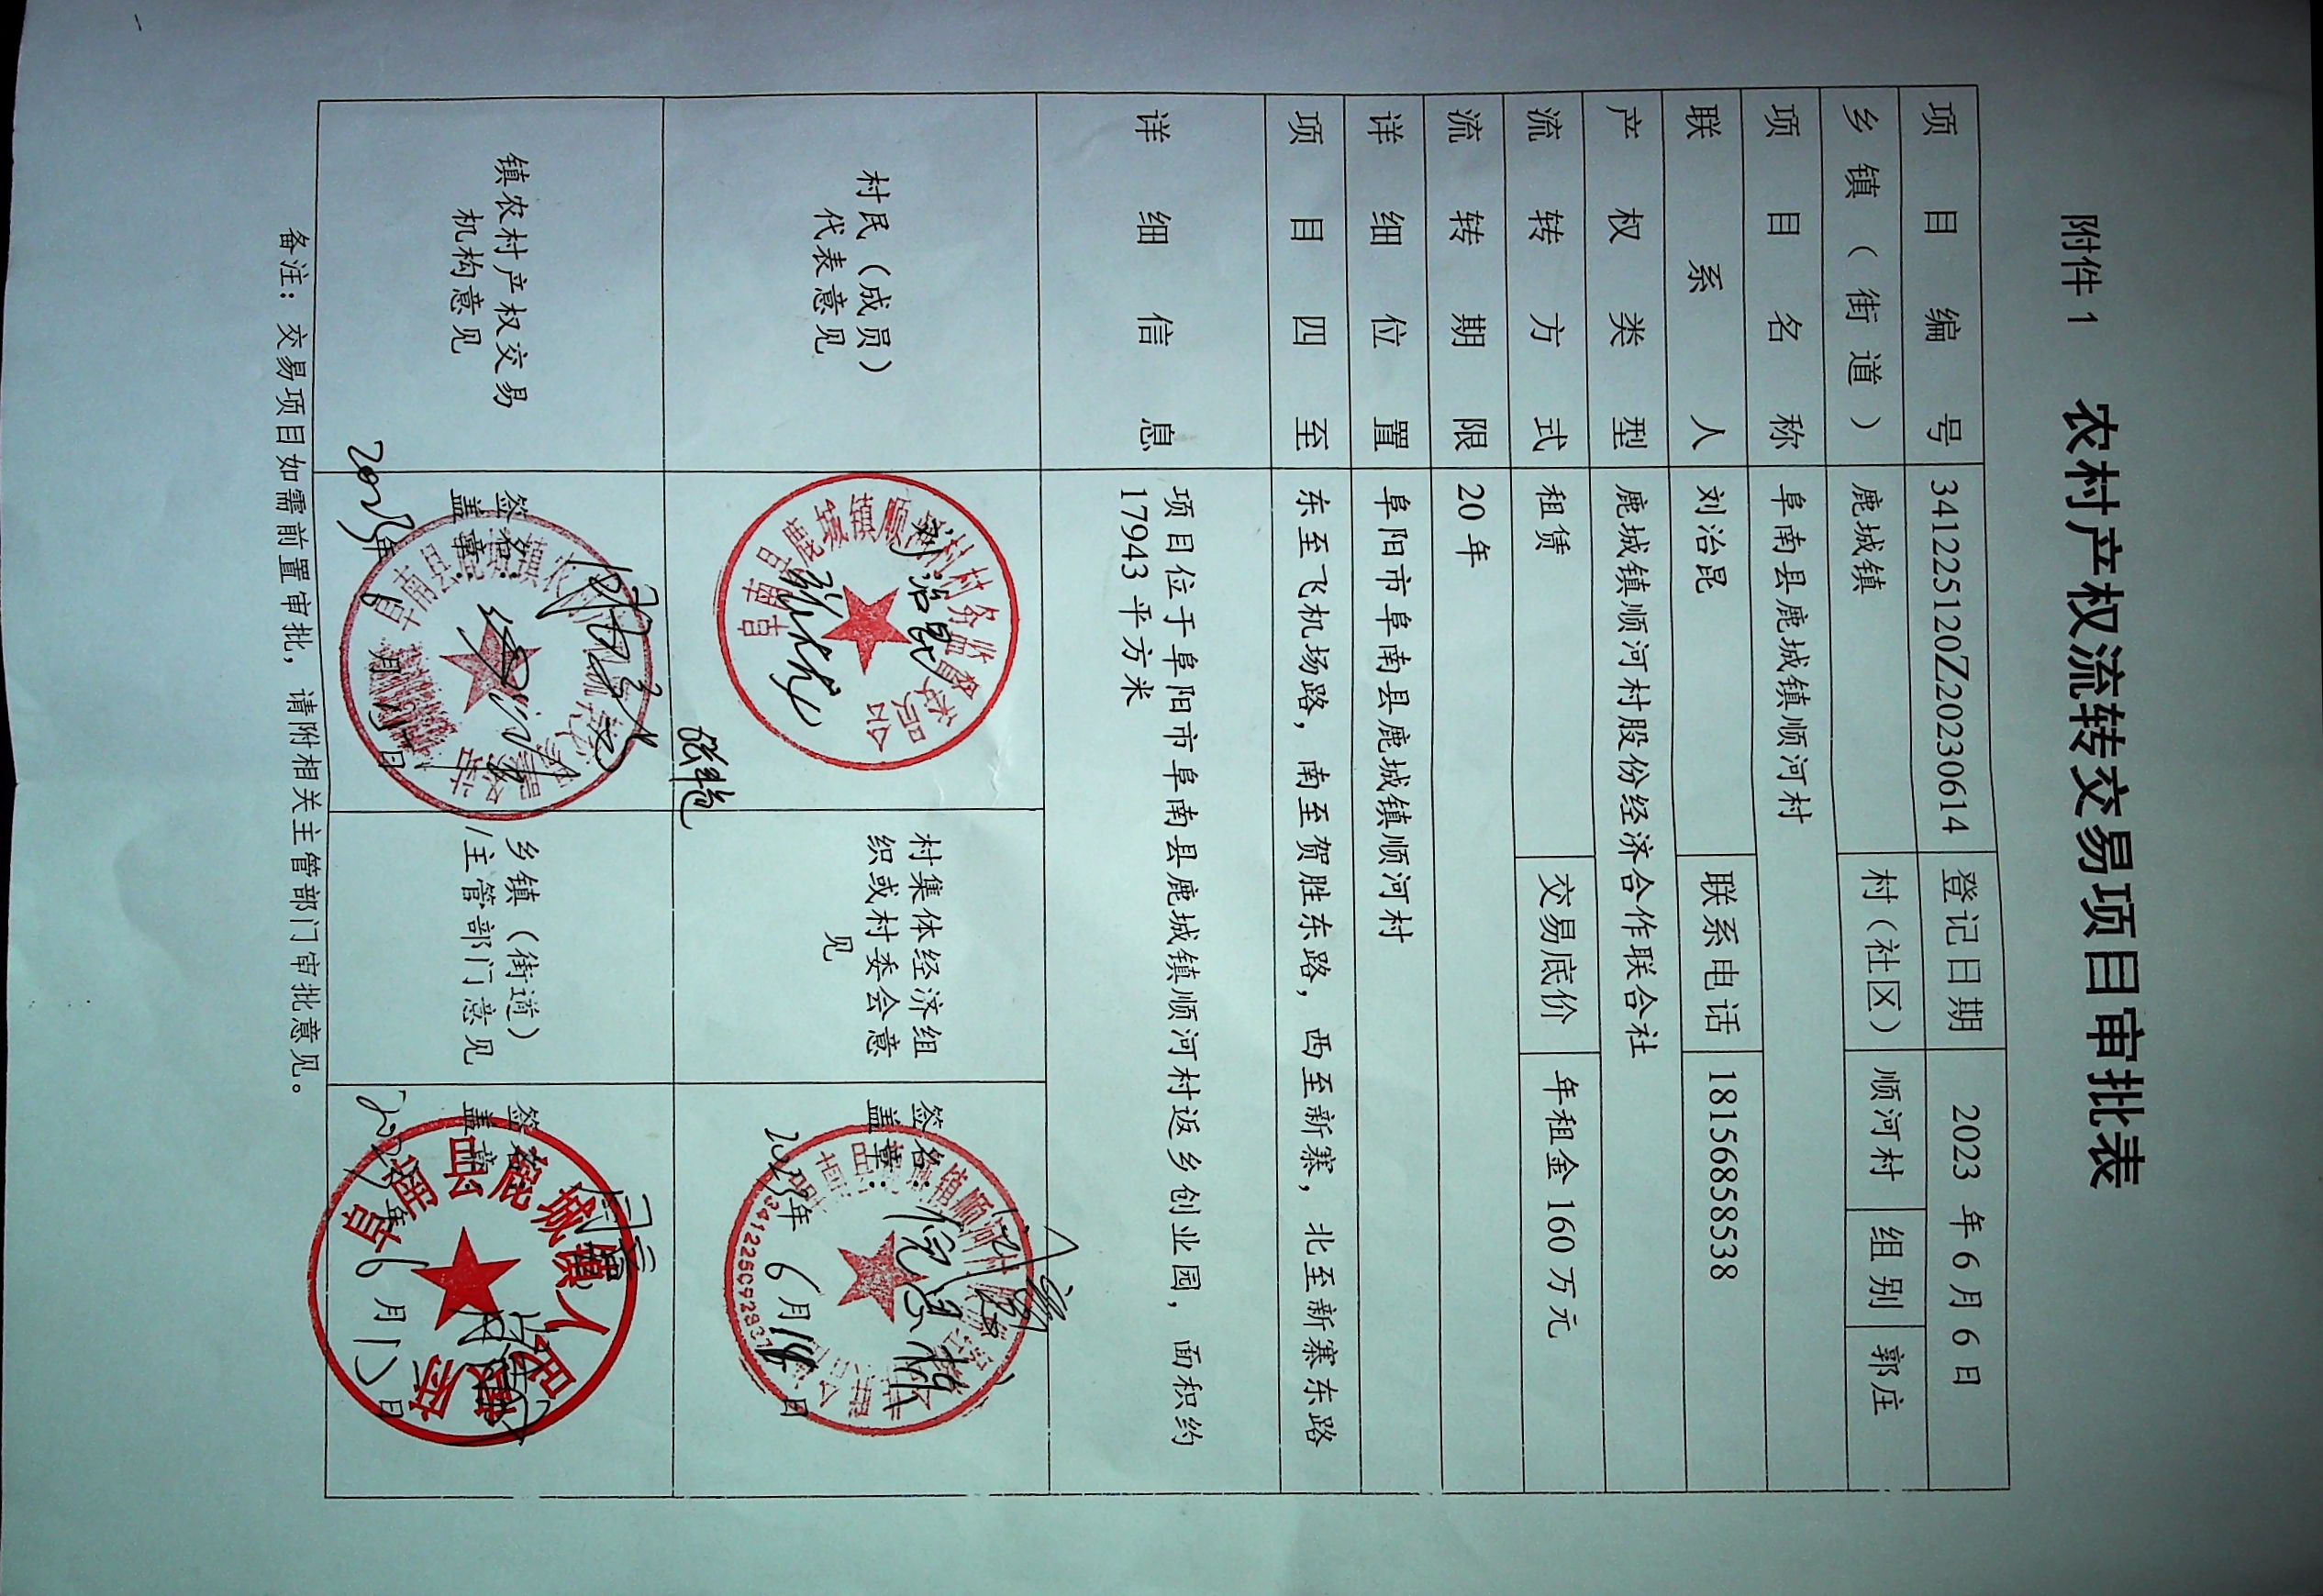 附件 1
农村产权流转交易项目审批表
项目编号 341225120Z20230614 登记日期 2023 年 6 月 6 日
乡镇（街道） 鹿城镇 村（社区） 顺河村 组别 郭庄
项目名称 阜南县鹿城镇顺河村
联系人 刘治昆 联系电话 18156858538
产权类型 鹿城镇顺河村股份经济合作联合社
流转方式 租赁 交易底价 年租金 160 万元
流转期限 20 年
详细位置 阜阳市阜南县鹿城镇顺河村
项目四至 东至飞机场路，南至贺胜东路，西至新寨，北至新寨东路
详细信息 项目位于阜阳市阜南县鹿城镇顺河村返乡创业园，面积约
17943 平方米
村民（成员）
代表意见
刘治昆
阜南县鹿城镇顺河村村务监督委员会
村集体经济组
织或村委会意
见
签名：
盖章：
2023年 6 月 日
镇农村产权交易
机构意见
签名：
盖章：
2023年 月 日
乡镇（街道）
/主管部门意见
签名：
盖章：
阜南县鹿城镇人民政府
2023年 6 月 日
备注：交易项目如需前置审批，请附相关主管部门审批意见。